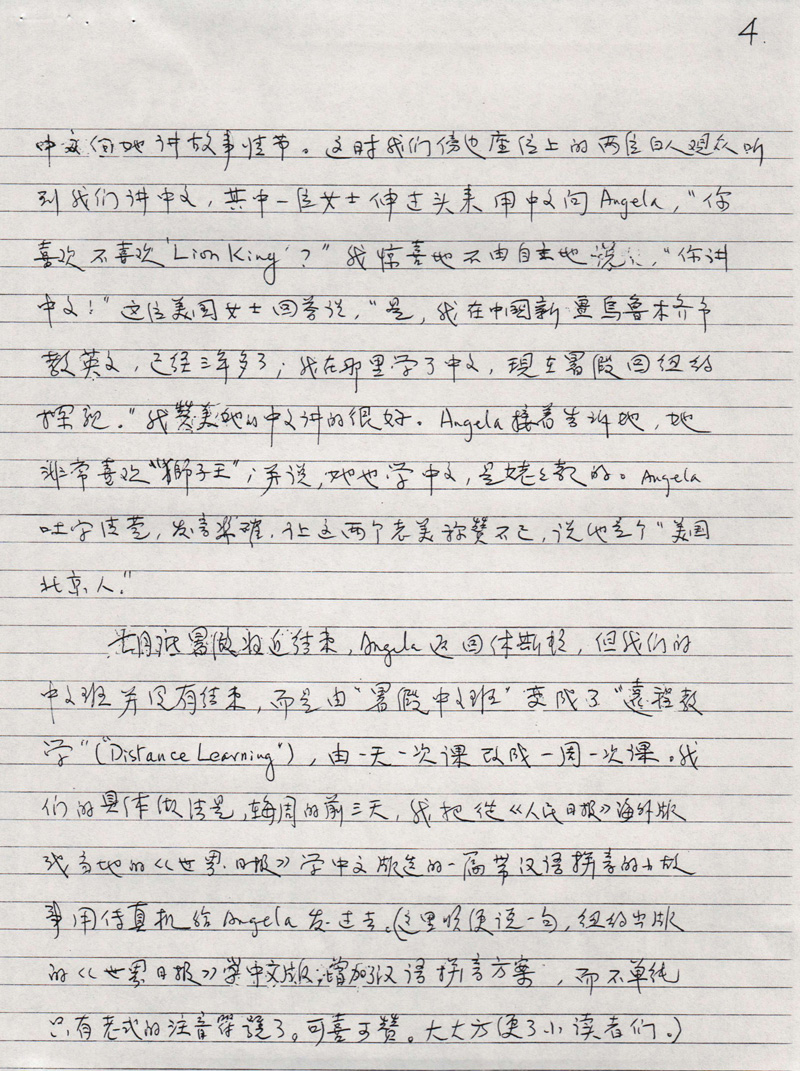 4.
中文向她讲故事情节。这时我们傍边座位上的两位白人观众听
到我们讲中文，其中一位女士伸过头来用中文问Angela，“你
喜欢不喜欢‘Lion King’？”我惊喜地不由自主地说：“你讲
中文！”这位美国女士回答说，“是，我在中國新疆乌鲁木齐市
教英文，已经三年多了；我在那里学了中文，現在暑假回纽约
探亲。”我赞美她的中文讲的很好。Angela接着告诉她，她
非常喜欢“獅子王”；并说，她也学中文，是姥姥教的。Angela
吐字清楚，发音准確，让这两个老美称赞不已，说她是个“美国
北京人。”
八月底暑假将近结束，Angela返回休斯顿，但我们的
中文班并没有结束，而是由“暑假中文班”变成了“远程教
学”（“Distance Learning”），由一天一次课改成一周一次课。我
们的具体做法是，每周的前三天，我把从《人民日报》海外版
或当地的《世界日报》学中文版选的一篇带汉语拼音的小故
事用传真机给Angela发过去。（这里顺便说一句，纽约出版
的《世界日报》学中文版，增加了汉语拼音方案，而不单纯
只有老式的注音符號了。可喜可赞。大大方便了小读者们。）